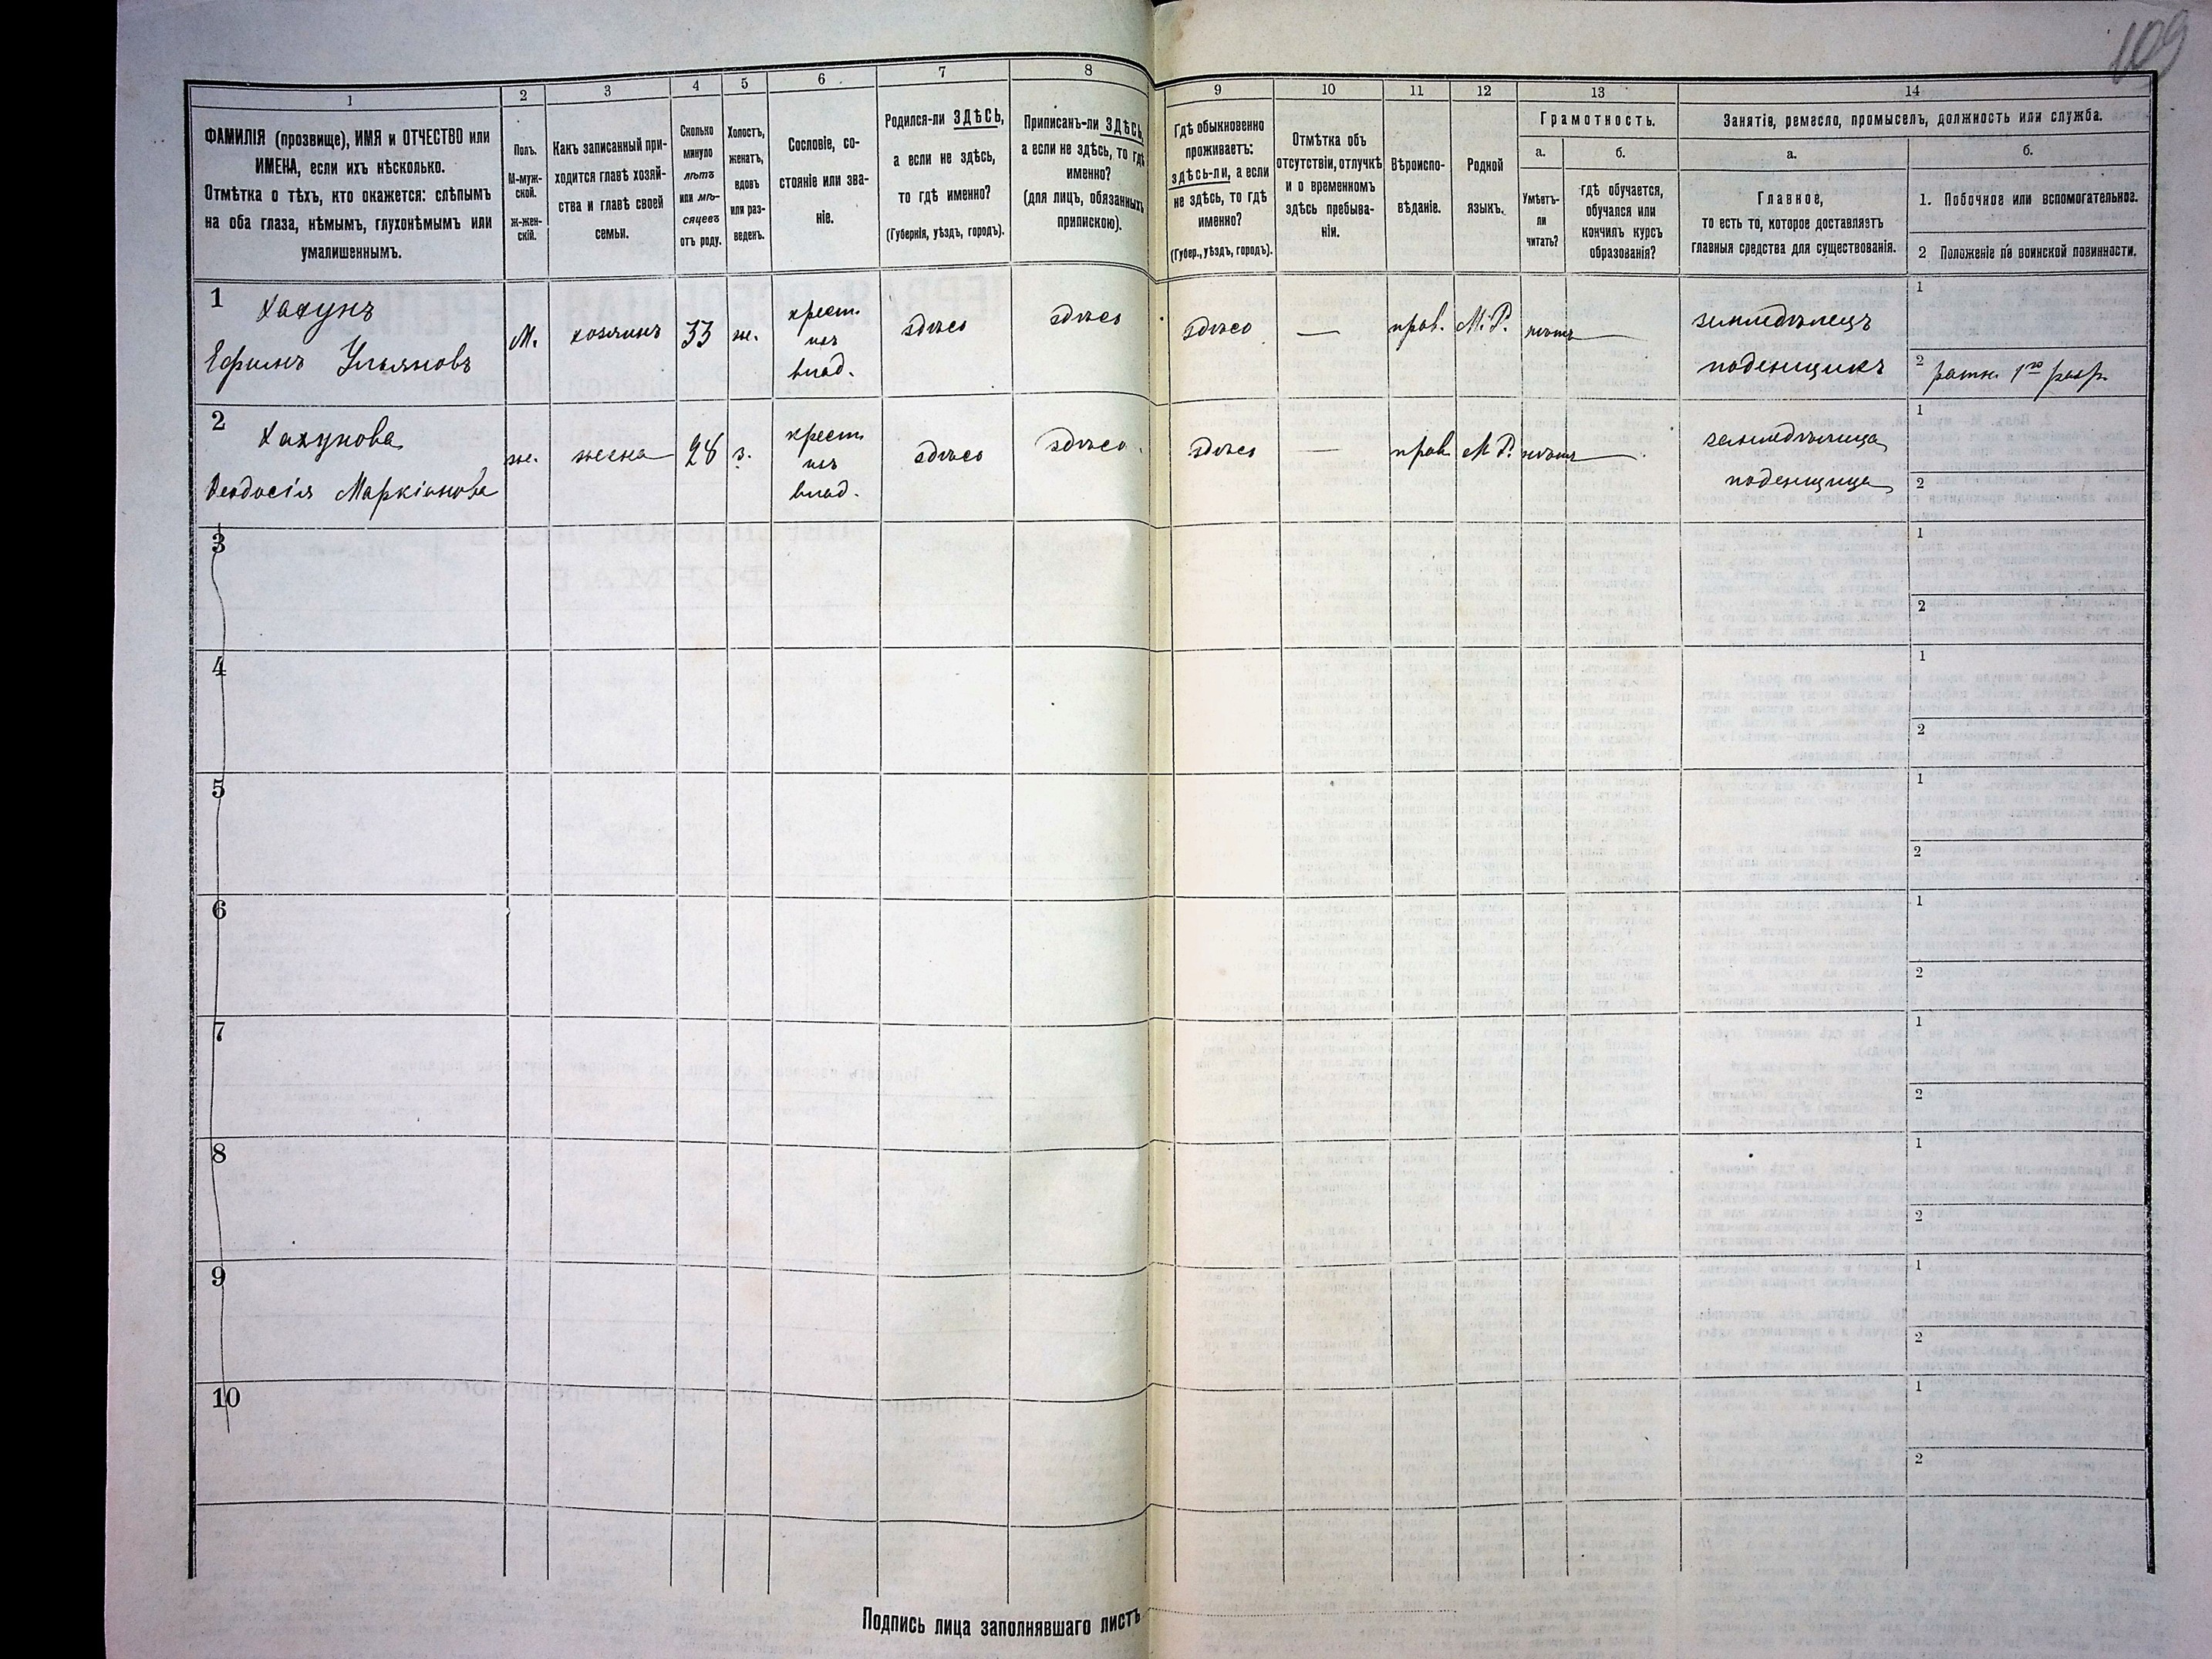 109
1
2
3
4
5
6
7
8
9
10
11
12
13
14
ФАМИЛІЯ (прозвище), ИМЯ и ОТЧЕСТВО или
ИМЕНА, если ихъ нѣсколько.
Отмѣтка о тѣхъ, кто окажется: слѣпымъ
на оба глаза, нѣмымъ, глухонѣмымъ или
умалишеннымъ.
Полъ.
М-муж-
ской.
Ж-жен-
скій.
Какъ записанный при-
ходится главѣ хозяй-
ства и главѣ своей
семьи.
Сколько
минуло
лѣтъ
или мѣ-
сяцевъ
отъ роду.
Холостъ,
женатъ,
вдовъ
или раз-
веденъ.
Сословіе, со-
стояніе или зва-
ніе.
Родился-ли ЗДѢСЬ,
а если не здѣсь,
то гдѣ именно?
(Губернія, уѣздъ, городъ).
Приписанъ-ли ЗДѢСЬ,
а если не здѣсь, то гдѣ
именно?
(для лицъ, обязанныхъ
припискою).
Гдѣ обыкновенно
проживаетъ:
здѣсь-ли, а если
не здѣсь, то гдѣ
именно?
(Губер., уѣздъ, городъ).
Отмѣтка объ
отсутствіи, отлучкѣ
и о временномъ
здѣсь пребыва-
ніи.
Вѣроиспо-
вѣданіе.
Родной
языкъ.
Грамотность.
а.
Умѣетъ-
ли
читать?
б.
Гдѣ обучается,
обучался или
кончилъ курсъ
образованія?
Занятіе, ремесло, промыселъ, должность или служба.
а.
Главное,
то есть то, которое доставляетъ
главныя средства для существованія.
б.
1. Побочное или вспомогательное.
2 Положеніе по воинской повинности.
1
Хахунъ
Ефимъ Ульяновъ
М.
хозяинъ
33
ж.
крест.
изъ
влад.
здѣсь
здѣсь
здѣсь
—
прав.
М. Р.
нѣтъ
—
земледѣлецъ
поденщикъ
1
2 ратн. 1го разр.
2
Хахунова
Ѳеодосія Маркіанова
ж.
жена
28
з.
крест.
изъ
влад.
здѣсь
здѣсь
здѣсь
—
прав.
М. Р.
нѣтъ
—
земледѣлица
поденщица
1
2
3
1
2
4
1
2
5
1
2
6
1
2
7
1
2
8
1
2
9
1
2
10
1
2
Подпись лица заполнявшаго листъ